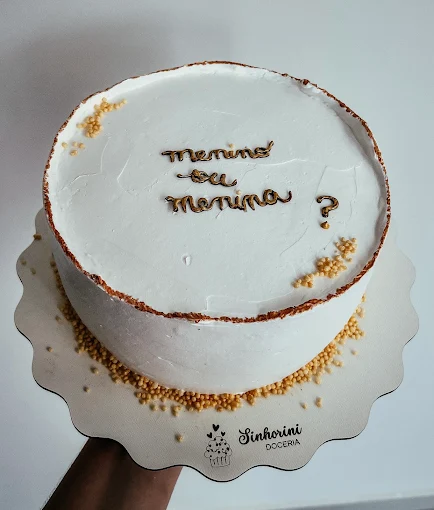 menino
ou
menina ?
Sinhorini
DOCERIA